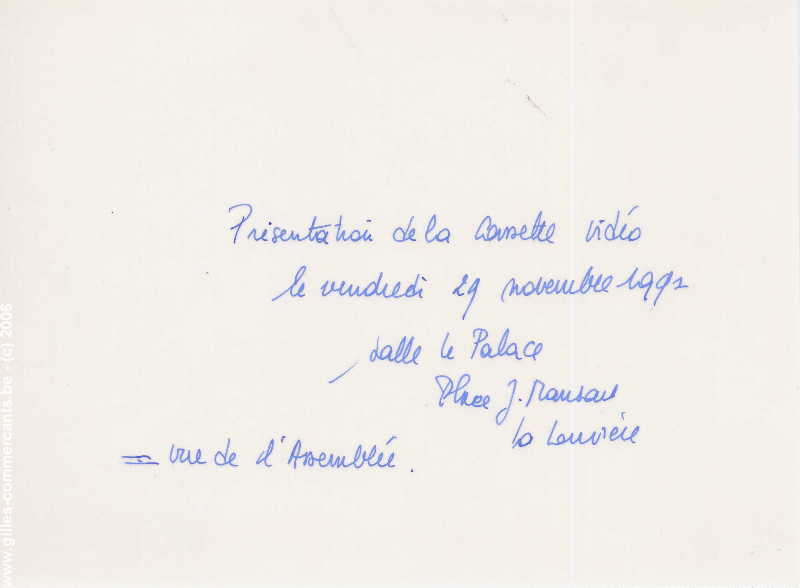 Présentation de la Cassette vidéo
le vendredi 29 novembre 1991
salle le Palace
Place J. Mansart
La Louvière
= vue de l'Assemblée.
www.gilles-commercants.be - (c) 2006